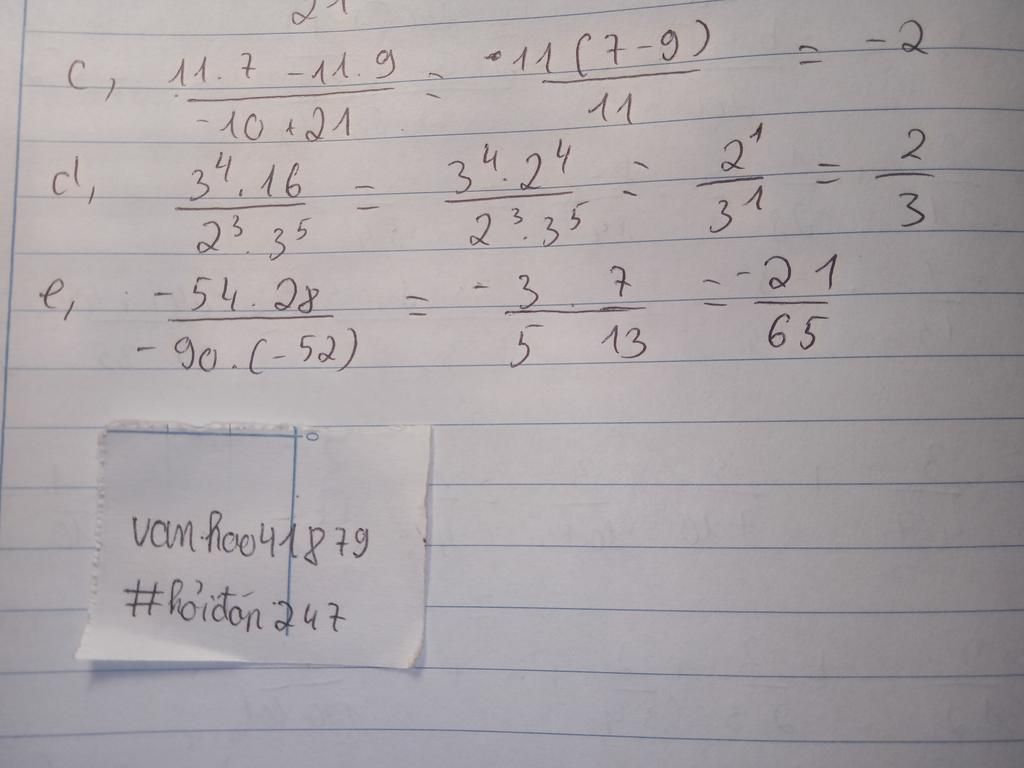 21
c, 11.7 -11.9 / -10+21 = 11(7-9) / 11 = -2
d, 3⁴.16 / 2³.3⁵ = 3⁴.2⁴ / 2³.3⁵ = 2¹ / 3¹ = 2 / 3
e, -54.28 / -90.(-52) = - 3 . 7 / 5 13 = -21 / 65
van.hoo41879
#hỏiđáp247